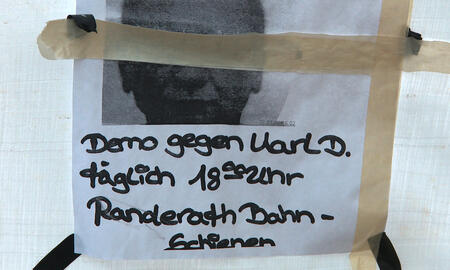 Demo gegen Karl D.
täglich 18⁰⁰ Uhr
Randerath Bahn-
schienen